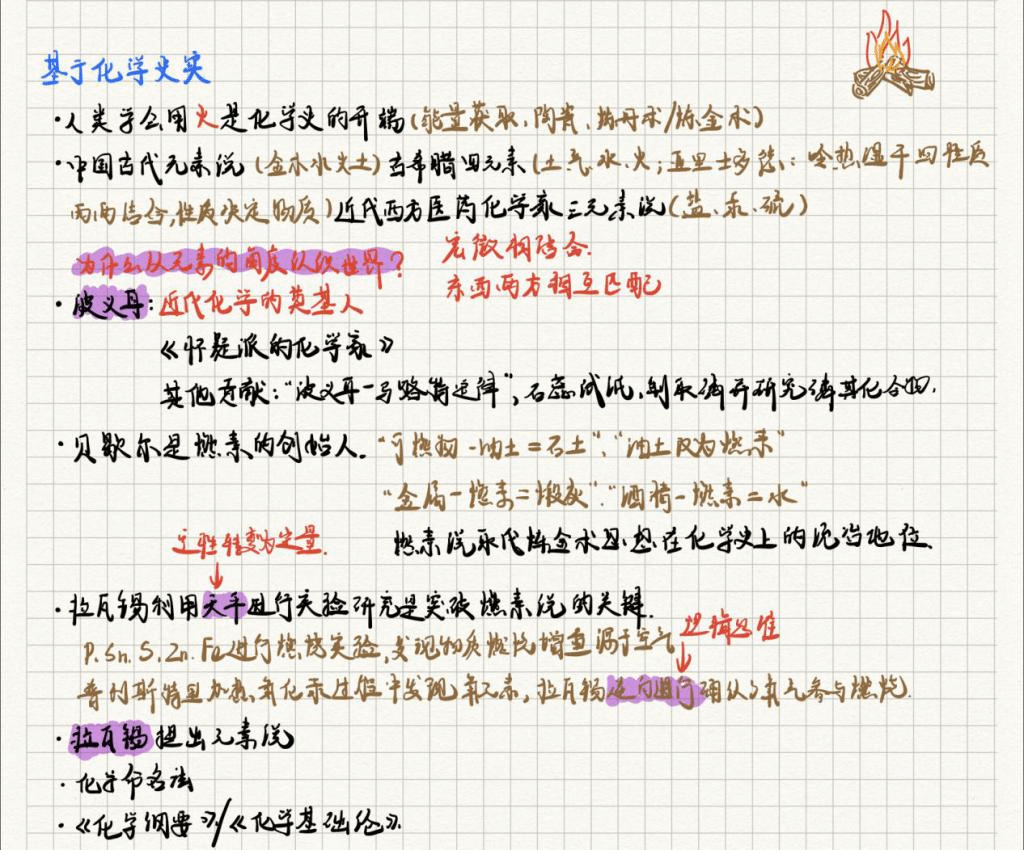 基于化学史实
·人类学会用火是化学史的开端(能量获取、陶瓷、炼丹术/炼金术)
·中国古代元素说(金木水火土)古希腊四元素(土、气、水、火;亚里士多德:冷热湿干四性质
两两结合,性质决定物质)近代西方医药化学家三元素说(盐、汞、硫)
为什么从元素的角度认识世界?
宏微相结合.
东西两方相互匹配
·波义耳:近代化学的奠基人
《怀疑派的化学家》
其他贡献:“波义耳-马略特定律”,石蕊试纸,制取磷并研究磷其化合物.
·贝歇尔是燃素的创始人.“可燃物-油土=石土”、“油土改为燃素”
“金属-燃素=煅灰”.“酒精-燃素=水”
定性转变为定量.
燃素说取代炼金术思想在化学史上的统治地位.
·拉瓦锡利用天平进行实验研究是突破燃素说的关键.
逻辑思维
P. Sn. S. Zn. Fe进行燃烧实验,发现物质燃烧增重源于空气
普利斯特里加热氧化汞过程中发现氧元素,拉瓦锡逆向进行确认了氧气参与燃烧.
·拉瓦锡提出元素说
·化学命名法
·《化学纲要》/《化学基础论》.